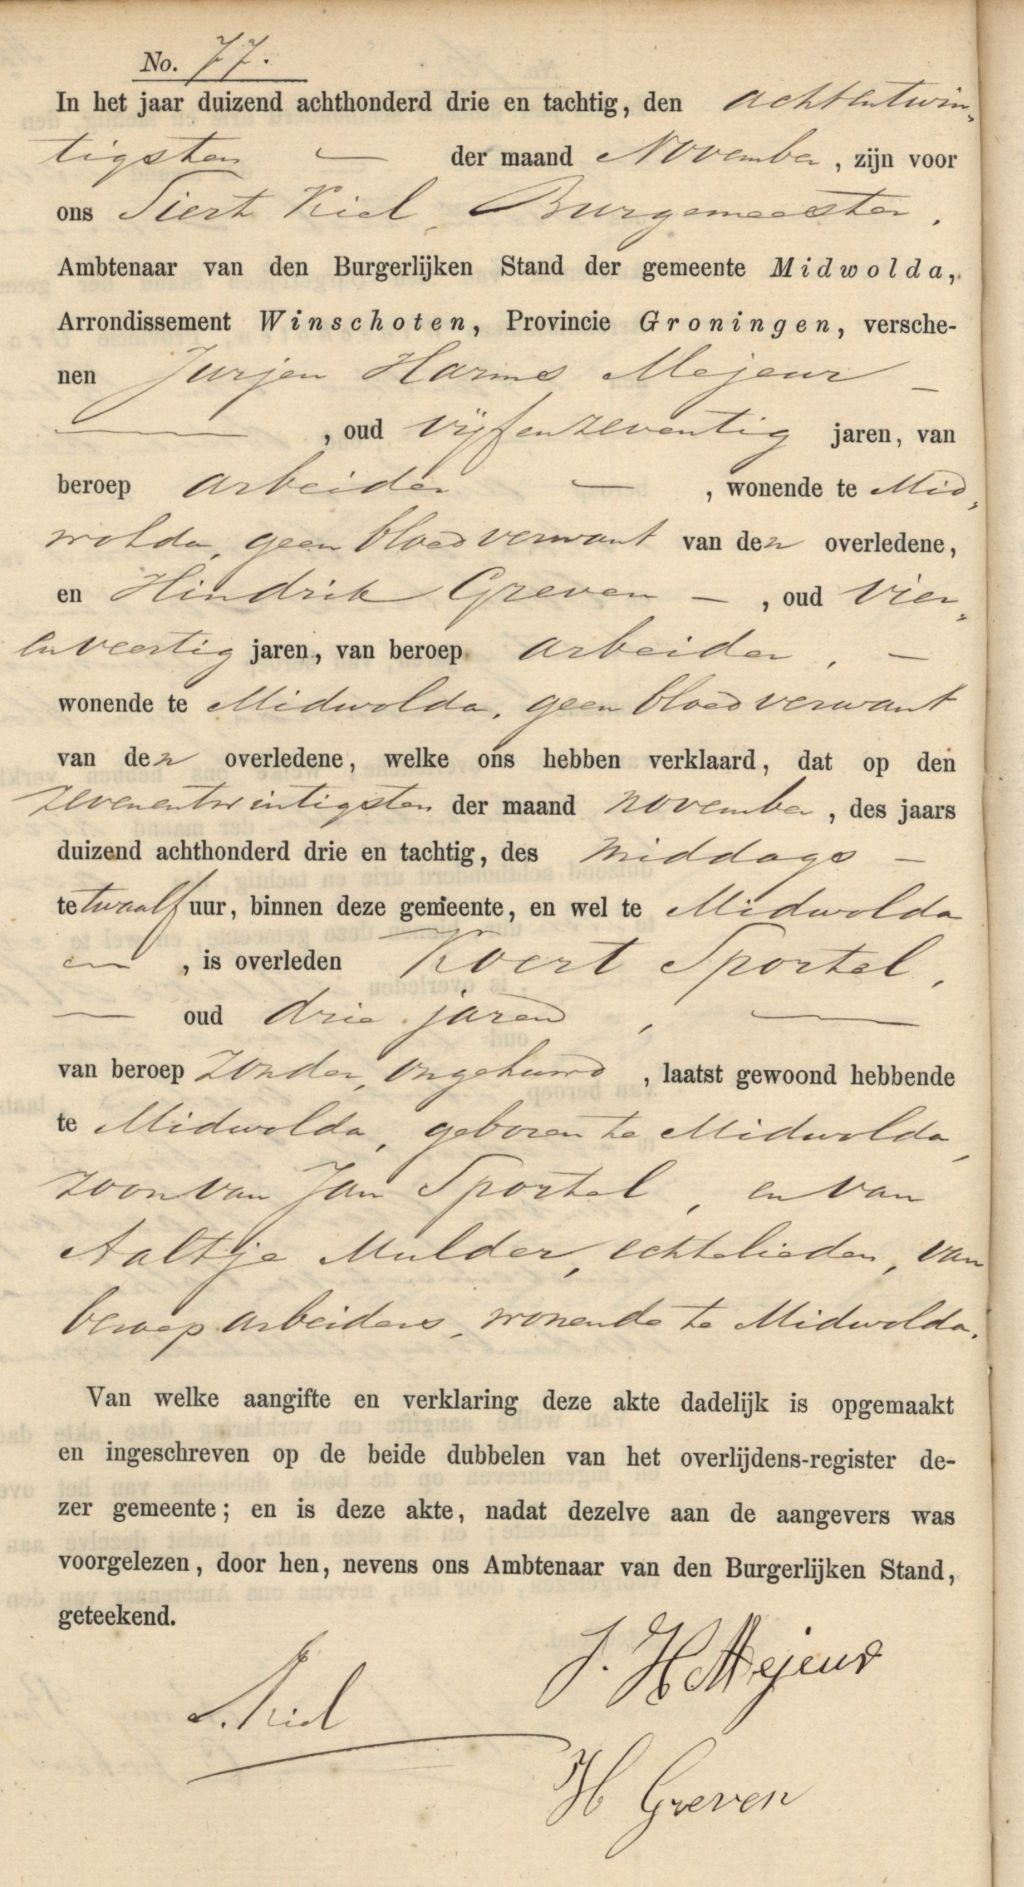 No. 77.
In het jaar duizend achthonderd drie en tachtig, den achtentwin-
tigsten — der maand November, zijn voor
ons Siert Kiel, Burgemeester,
Ambtenaar van den Burgerlijken Stand der gemeente Midwolda,
Arrondissement Winschoten, Provincie Groningen, versche-
nen Jurjen Harms Mejeur —
—, oud vijfenzeventig jaren, van
beroep arbeider —, wonende te Mid-
wolda, geen bloedverwant van den overledene,
en Hindrik Greven —, oud vier-
enveertig jaren, van beroep arbeider, —
wonende te Midwolda, geen bloedverwant
van den overledene, welke ons hebben verklaard, dat op den
zevenentwintigsten der maand november, des jaars
duizend achthonderd drie en tachtig, des middags —
te twaalf uur, binnen deze gemeente, en wel te Midwolda
en, is overleden Koert Sportel,
— oud drie jaren, —
van beroep zonder, ongehuwd, laatst gewoond hebbende
te Midwolda, geboren te Midwolda,
zoon van Jan Sportel, en van
Aaltje Mulder, echtelieden, van
beroep arbeiders, wonende te Midwolda.
Van welke aangifte en verklaring deze akte dadelijk is opgemaakt
en ingeschreven op de beide dubbelen van het overlijdens-register de-
zer gemeente; en is deze akte, nadat dezelve aan de aangevers was
voorgelezen, door hen, nevens ons Ambtenaar van den Burgerlijken Stand,
geteekend.
J. H Mejeur
S. Kiel
H Greven